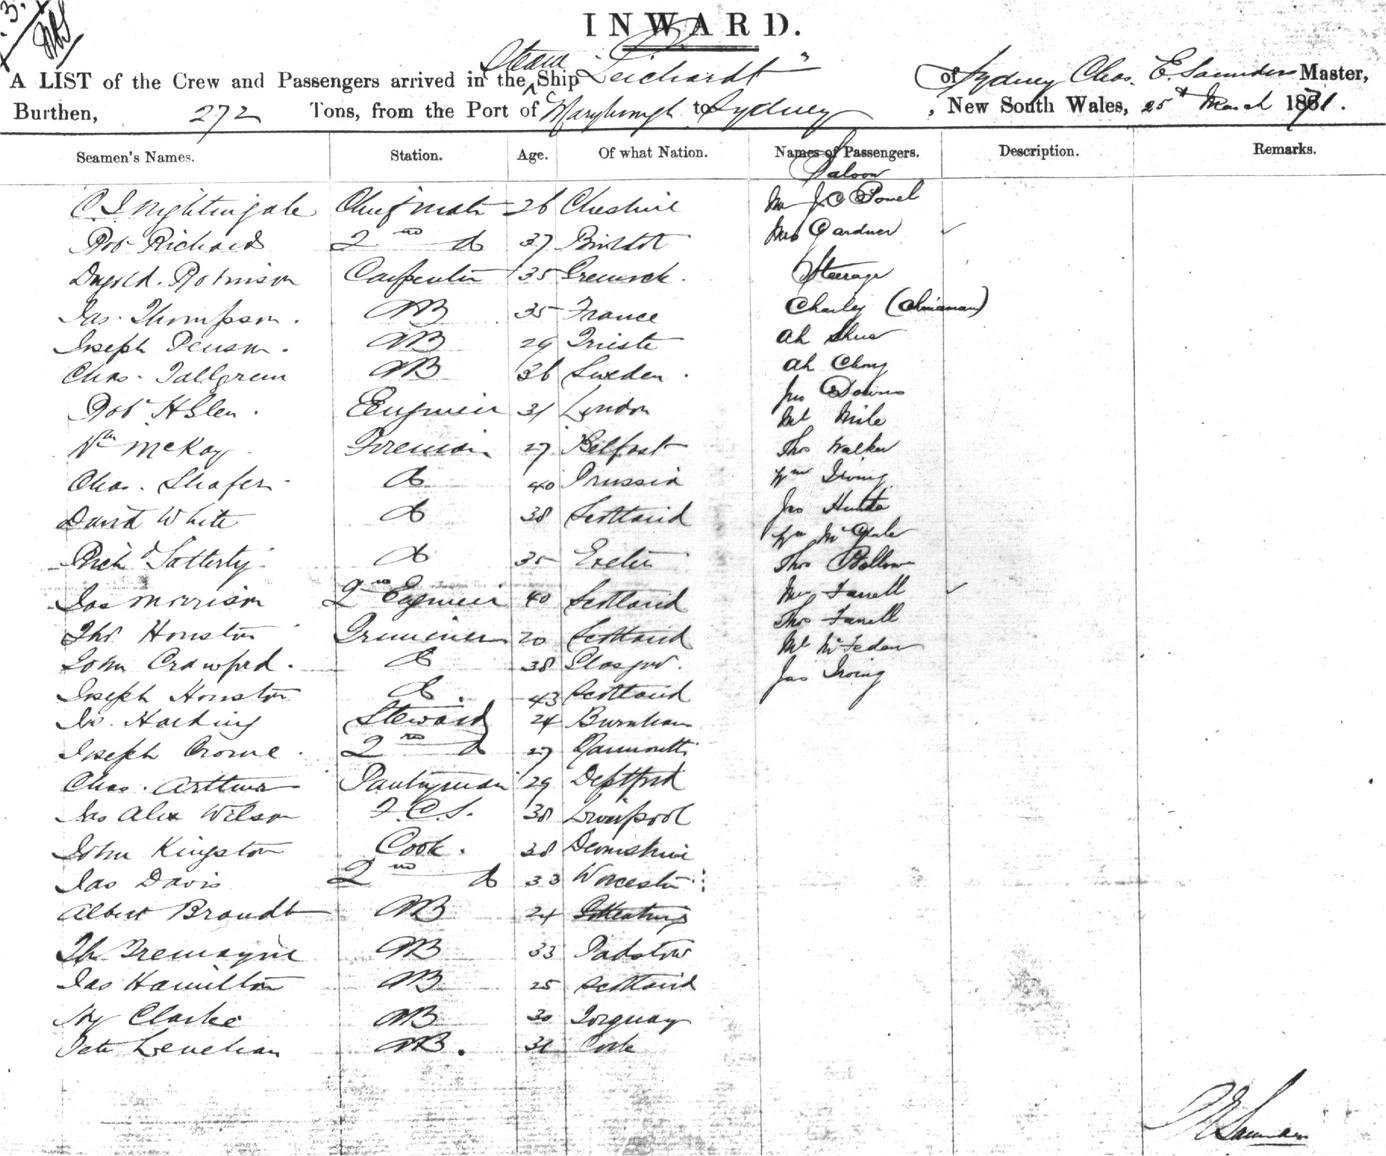 INWARD.
Steam
A LIST of the Crew and Passengers arrived in the Ship "Leichardt" of Sydney Chas. E. Saunders Master,
Burthen, 272 Tons, from the Port of Maryborough to Sydney, New South Wales, 25th March 1871.
Seamen's Names. Station. Age. Of what Nation. Names of Passengers. Description. Remarks.
Saloon
C I Nightingale Chief Mate 26 Cheshire Mr J C Powel
Rob Richard 2nd d 37 Bristol Mrs Gardner ✓
Dugald. Robinson Carpenter 35 Greenock. Steerage
Jas. Thompson. AB 35 France Charley (Chinaman)
Joseph AB 29 Trieste Ah
Chas. Tallgren AB 36 Sweden. Ah Chong
Rob H Slen. Engineer 31 London Jno Downs
Mr Mile
Wm McKay Fireman 27 Belfast Thos Walker
Chas. Shafer d 40 Prussia Wm Irving
David White d 38 Scotland Jno
Wm
Richd d 35 Exeter Thos
Jas Morrison 2nd Engineer 40 Scotland Mrs Farrell ✓
Thos Houston 20 Scotland Thos Farrell
John Crawford. d 38 Glasgow. Mr McFedan
Joseph Houston d. 43 Scotland Jas Irving
Jno. Harding Steward 24 Burnham
Joseph Crowe. 2nd d 27 Yarmouth
Chas. Arthur Pantryman 29 Deptford
Jas Alex Wilson F.C.S. 38 Liverpool
John Kingston Cook. 38 Devonshire
Jas Davis 2nd d 33 Worcester
Albert Brandt AB 24
Th Tremayne AB 33 Padstow
Jas Hamilton AB 25 Scotland
Hy Clarke AB 30 Torquay
Pete Lenehan AB. 31 Cork
Saunders